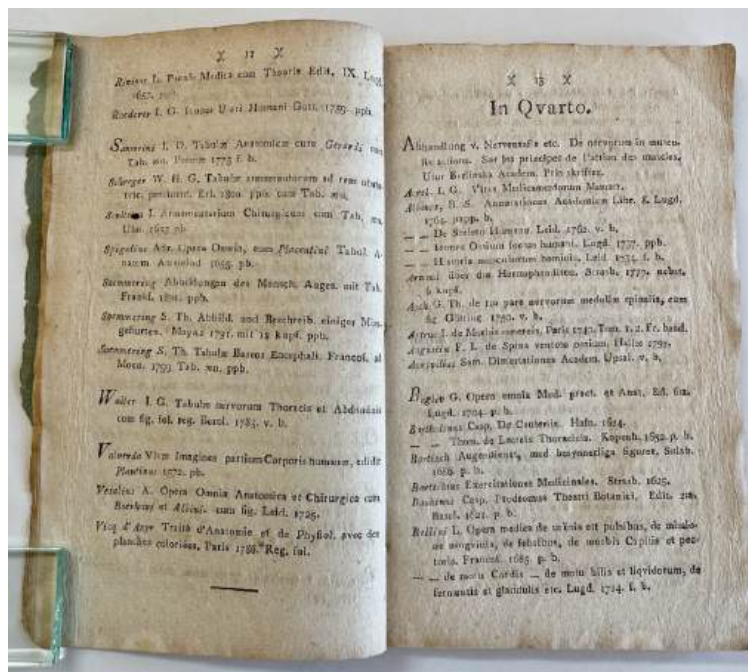 X 12 X
L. Medica cum Edit. IX. Lugd.
1657.
Roederer I. G. Icones Uteri Humani Gott. 1759. ppb.
I. D. Tabulæ Anatomicæ cura cum
Tab. 1775 f. b.
W. H. G. Tabulæ ad rem
pertinent. Erl. 1800. ppb. cum Tab.
I. Armamentarium Chirurgicum cum Tab.
pb
Spigelius Adr. Opera Omnia, cum Placentini Tabul. A-
natom. 1655. pb.
Sœmmering Abbildungen des Mensch. Auges. mit Tab.
Frankf. 1801. ppb.
Sœmmering S. Th. Abbild. und Beschreib. einiger Mis-
geburten. Maynz 1791. mit 12 kupf. ppb.
Sœmmering S. Th. Tabulæ Baseos Encephali. Francof. ad
Moen. 1799 Tab. ppb.
Walter I. G. Tabulæ nervorum Thoracis et Abdominis
cum fig. fol. reg. Berol. 1783. v. b.
Vivæ Imagines partium Corporis humani, edidit
Plantinus 1572. pb.
Vesalius A. Opera Omnia Anatomica et Chirurgica cura
Boerhavi et Albini. cum fig. Leid. 1725.
Vicq d'Azyr Traité d'Anatomie et de Physiol. avec des
planches coloriées, Paris 1786. Reg. fol.
X 13 X
In Qvarto.
Abhandlung v. Nervensafte etc. De nervorum in muscu-
los actione. Sur les principes de l'action des muscles.
Utur Berlinska Academ. Pris skrifter.
I. G. Vires Medicamentorum
Albinus, B. S. Annotationes Academicæ Libr. 8. Lugd.
1764. pppp. b.
— — De Sceleto Humano. Leid. 1762. v. b.
— — Icones Ossium foetus humani. Lugd. 1737. ppb.
— — Historia musculorum hominis, Leid 1734. f. b.
über die Hermaphroditen. Strasb. 1777. nebst.
kupf.
Asch G. Th. de 1:o pare nervorum medullæ spinalis, cum
fig Götting 1750. v. b.
Astruc I. de Morbis venereis. Paris 1740. Tom. 1. 2. Fr. band.
F. L. de Spina ventosa ossium. Halæ 1797.
Sam. Dissertationes Academ. Upsal. v. b.
Baglivi G. Opera omnia Med. pract. et Anat. Ed. 6ta.
Lugd. 1704. p. b.
Bartholinus Casp. De Cauteriis. Hafn. 1624.
— — Thom. de Lacteis Thoracicis. Kopenh. 1652. p. b.
Bartisch Augendienst, med besynnerliga figurer. Sulzb.
1686. p. b.
Exercitationes Medicinales. Strasb. 1625.
Bauhinus Casp. Prodromus Theatri Botanici. Edit. 2da.
Basel. p. b.
Bellini L. Opera medica de urinis et pulsibus, de missio-
ne sangvinis, de febribus, de morbis Capitis et pec-
toris. Francof. 1685. p. b.
— — de motu Cordis — de motu bilis et liqvidorum, de
fermentis et glandulis etc. Lugd. 1714. f. b.